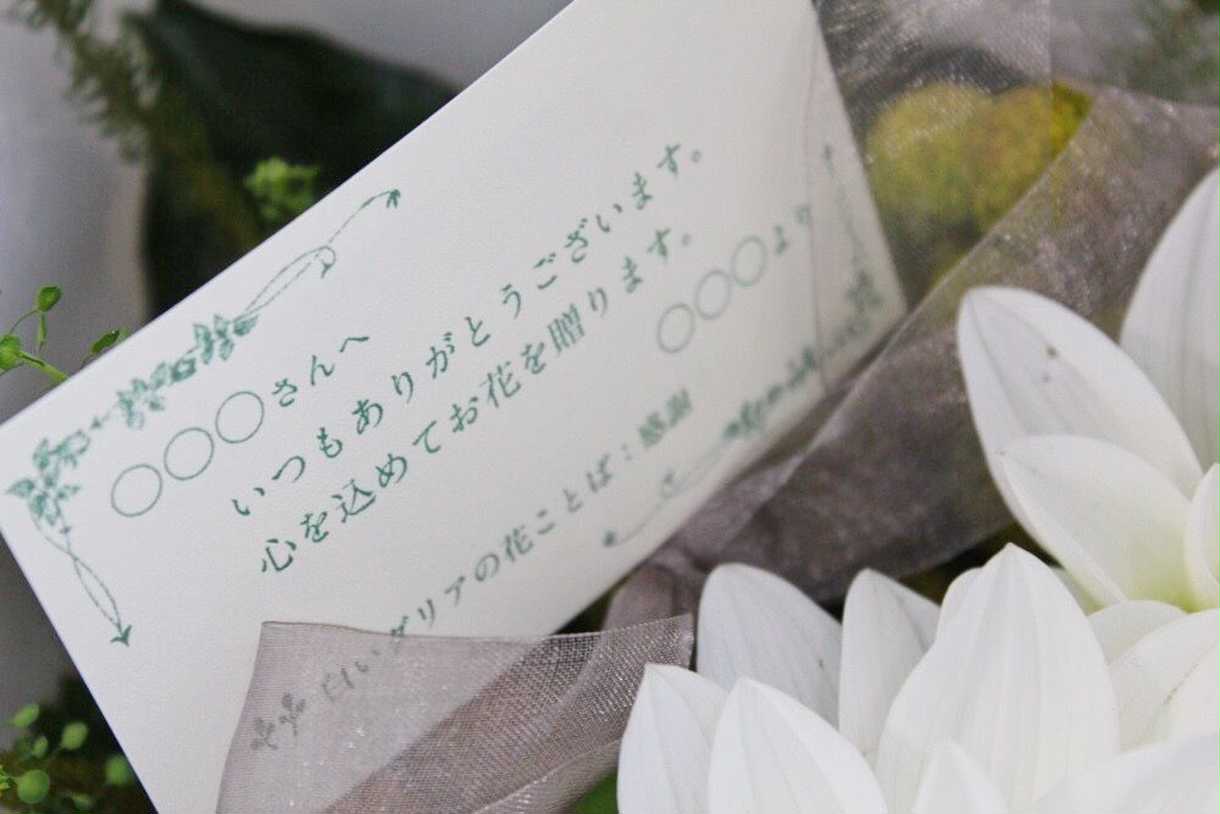 〇〇〇さんへ
いつもありがとうございます。
心を込めてお花を贈ります。
〇〇〇より
白いダリアの花ことば：感謝